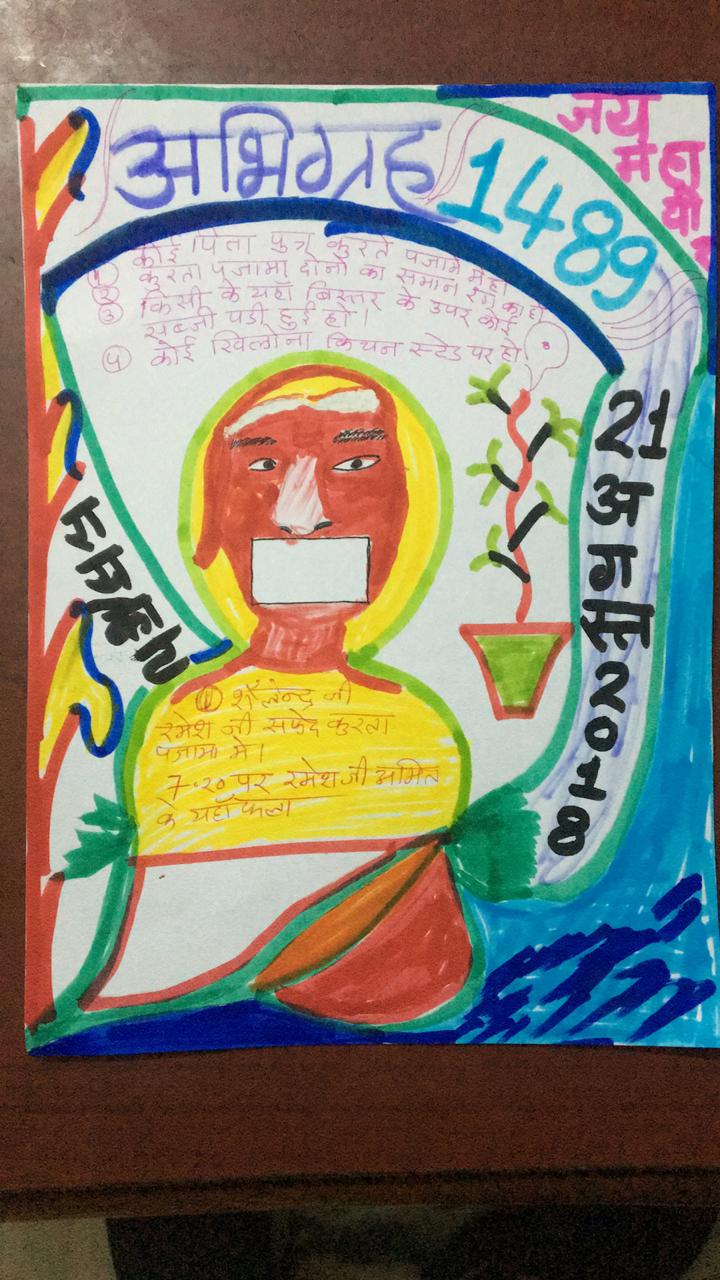 अभिग्रह 1489
जय
महा
वी
र
① कोई पिता पुत्र कुरते पजामे में हो
② कुरता पजामा दोनो का समान रंग का हो
③ किसी के यहाँ बिस्तर के उपर कोई
सब्जी पडी हुई हो।
④ कोई खिलोना किचन स्टेड पर हो
21
अ
ग
स्त
2018
① शैलेन्द्र जी
रमेश जी सफेद कुरता
पजामा मे।
7.20 पर रमेश जी अमित
के यहाँ फला